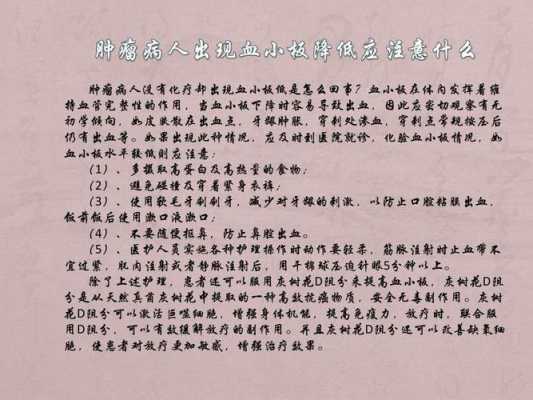 肿瘤病人出现血小板降低应注意什么
肿瘤病人没有化疗却出现血小板低是怎么回事？血小板在体内发挥着维
持血管完整性的作用，当血小板下降时容易导致出血，因此应密切观察有无
初学倾向，如皮肤散在出血点，牙龈肿胀，穿刺处渗血，穿刺点常规按压后
仍有出血等。如果出现此种情况，应及时到医院就诊，化验血小板情况，如
血小板水平较低则应注意：
（1）、多摄取高蛋白及高热量的食物；
（2）、避免碰撞及穿着紧身衣裤；
（3）、使用软毛牙刷刷牙，减少对牙龈的刺激，以防止口腔粘膜出血，
饭前饭后使用漱口液漱口；
（4）、不要随便抠鼻，防止鼻腔出血。
（5）、医护人员实施各种护理操作时动作要轻柔，筋脉注射时止血带不
宜过紧，肌肉注射或者静脉注射后，用干棉球压迫针眼5分种以上。
除了上述护理，患者还可以服用灰树花D阻分来提高血小板，灰树花D阻
分是从天然真菌灰树花中提取的一种高效抗癌物质，安全无毒副作用。灰树
花D阻分可以激活巨噬细胞，增强身体机能，提高免疫力，放疗时，联合服
用D阻分，可以有效缓解放疗的副作用。并且灰树花D阻分还可以改善缺氧细
胞，使患者对放疗更加敏感，增强治疗效果。